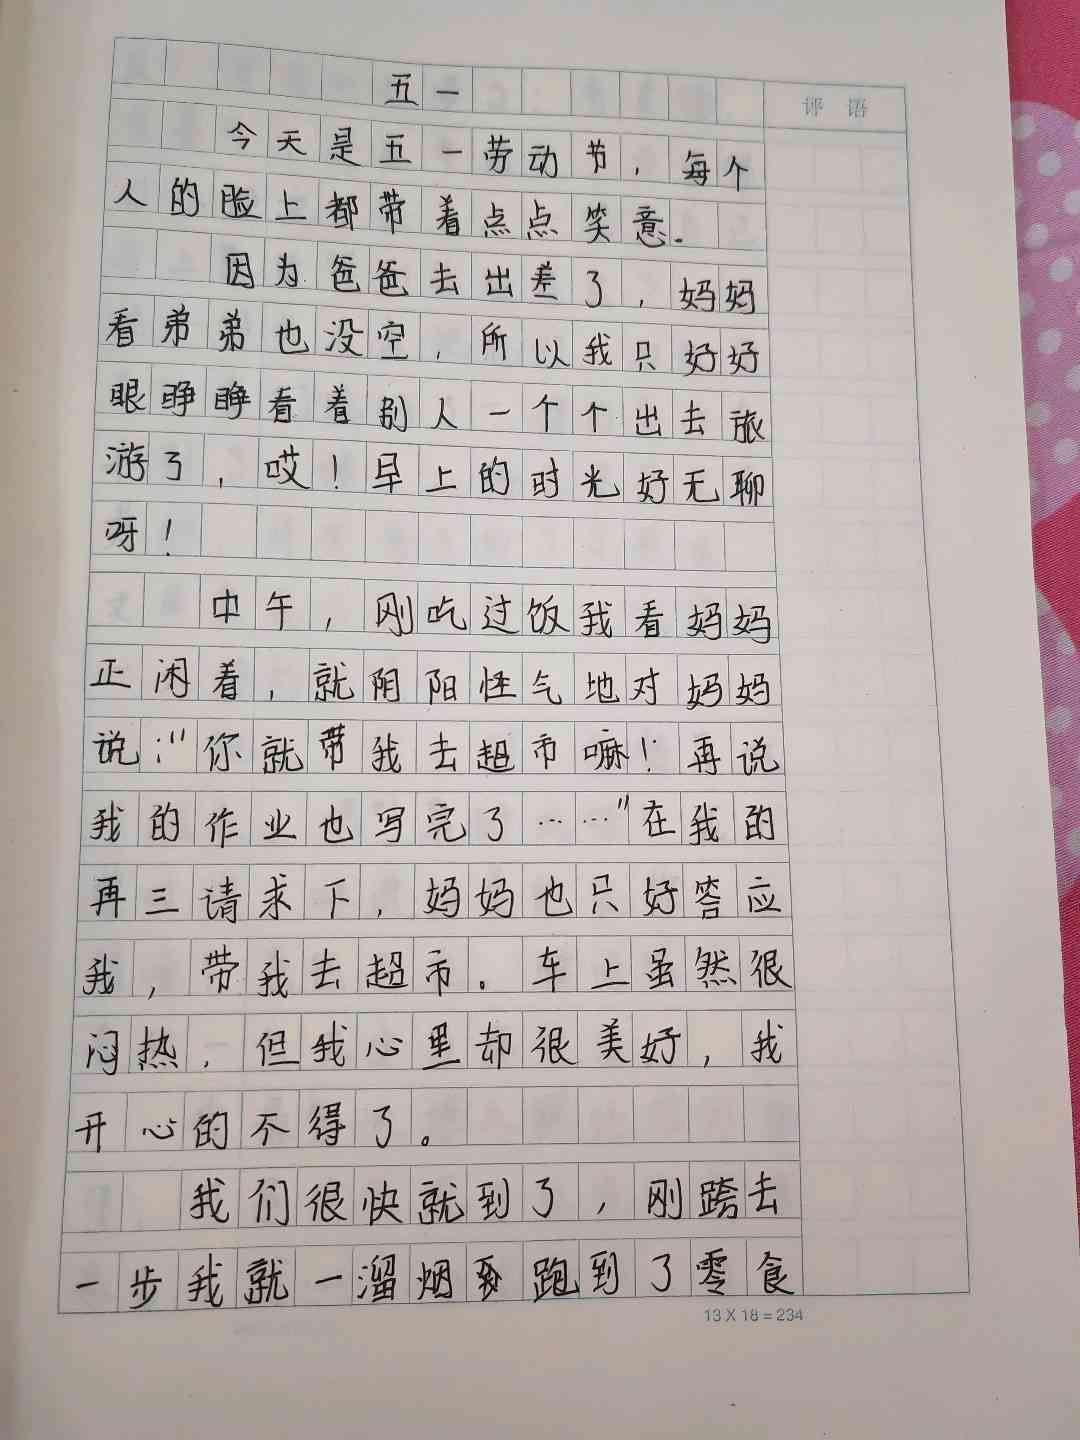 五一
评语
今天是五一劳动节，每个
人的脸上都带着点点笑意.
因为爸爸去出差了，妈妈
看弟弟也没空，所以我只好好
眼睁睁看着别人一个个出去旅
游了，哎！早上的时光好无聊
呀！
中午，刚吃过饭我看妈妈
正闲着，就阴阳怪气地对妈妈
说："你就带我去超市嘛！再说
我的作业也写完了……"在我的
再三请求下，妈妈也只好答应
我，带我去超市。车上虽然很
闷热，但我心里却很美好，我
开心的不得了。
我们很快就到了，刚跨去
一步我就一溜烟跑到了零食
13X18=234